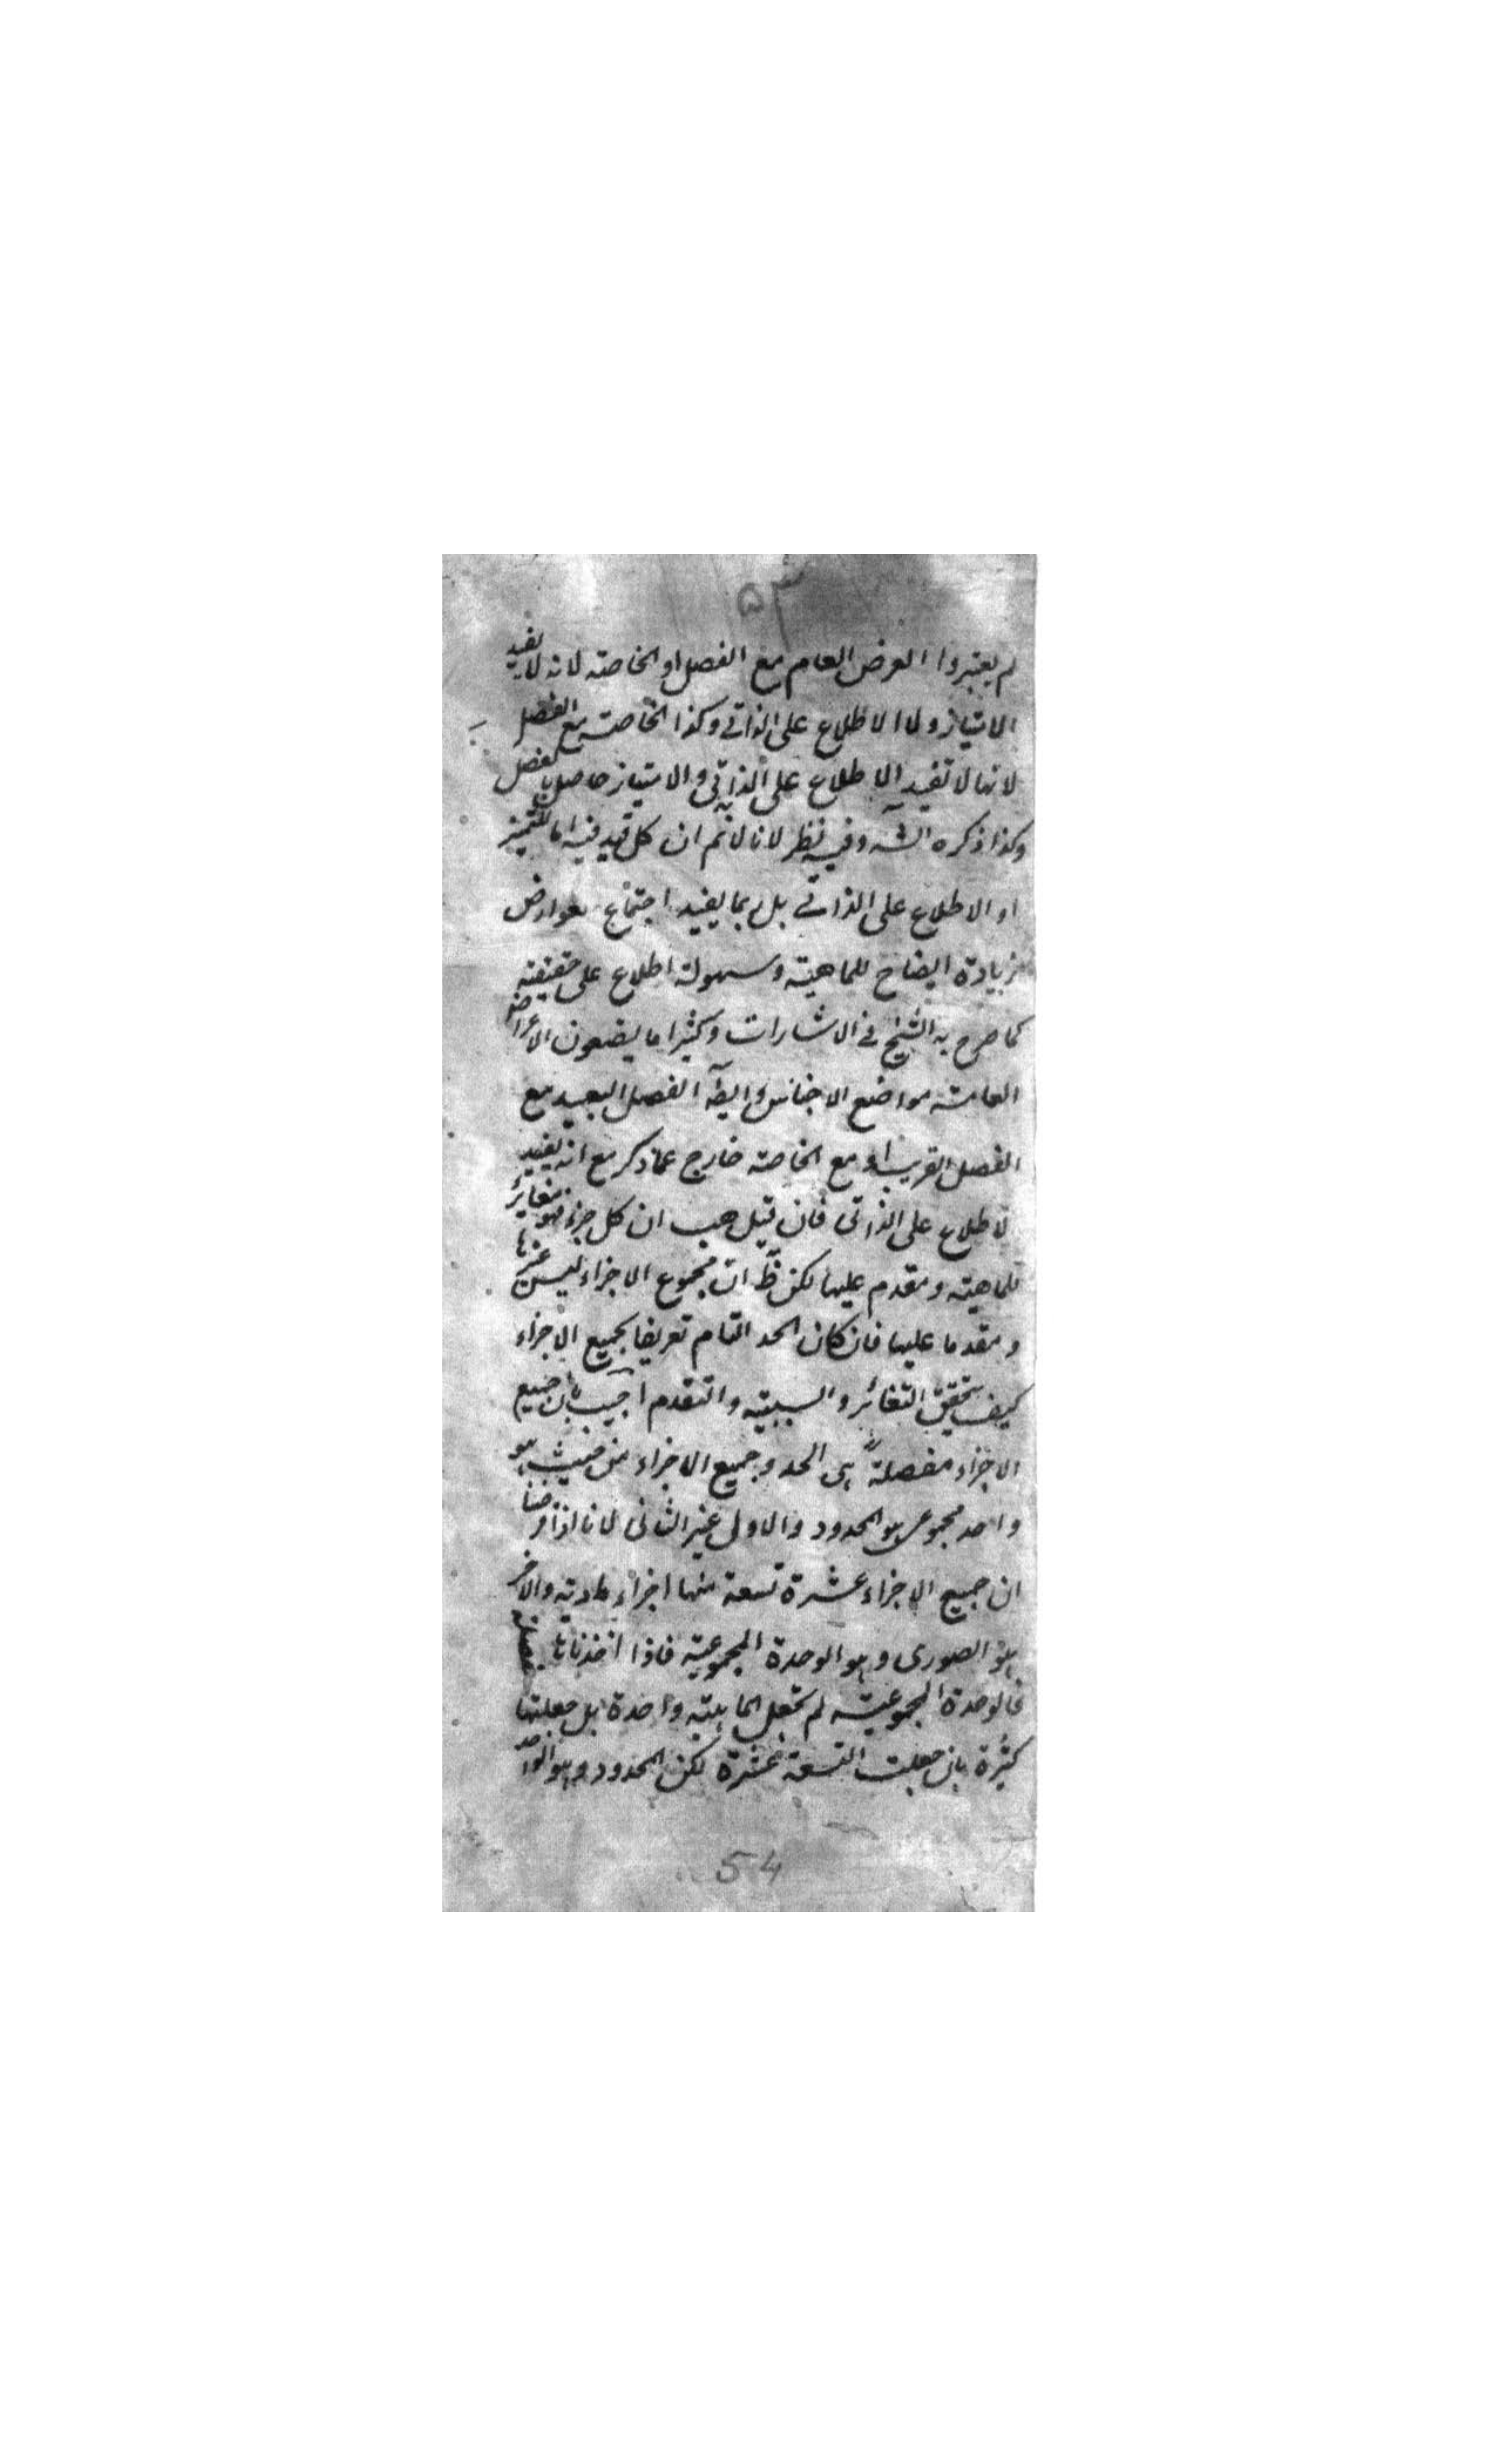 ۵۳
لم يعتبروا العرض العام مع الفصل او الخاصة لانه لا يفيد
الامتياز ولا الاطلاع على الذاتي وكذا الخاصة مع الفصل
لانها لا تفيد الاطلاع على الذاتي والامتياز حاصل بالفصل
وكذا ذكره الشـ وفيه نظر لانا لانم ان كل قيد فيه اما للتميز
او الاطلاع على الذاتي بل ربما يفيد اجتماع لعوارض
زيادة ايضاح للماهية وسهولة اطلاع على حقيقته
كما صرح به الشيخ في الاشارات وكثيرا ما يضعون الاعراض
العامة مواضع الاجناس وايضـ الفصل البعيد مع
الفصل القريب او مع الخاصة خارج عما ذكر مع انه يفيد
لاطلاع على الذاتى فان قيل هب ان كل جزء فهو مغاير
للماهية ومقدم عليها لكن ظ ان مجموع الاجزاء ليس غيرها
ومقدما عليها فان كان الحد التام تعريفا بجميع الاجزاء
كيف يتحقق التغائر والسببية والتقدم اجيب بان جميع
الاجزاء مفصلةً هى الحد وجميع الاجزاء من حيث هو
واحد مجموعى هو المحدود والاول غير الثانى لانا اذا فرضنا
ان جميع الاجزاء عشرة تسعة منها اجزاء مادية والاخر
هو الصورى وهو الوحدة المجموعية فاذا اخذناها
فالوحدة المجموعية لم تجعل الماهية واحدة بل جعلتها
كثرة بان جعلت التسعة عشرة لكن المحدود وهو الواحد
54